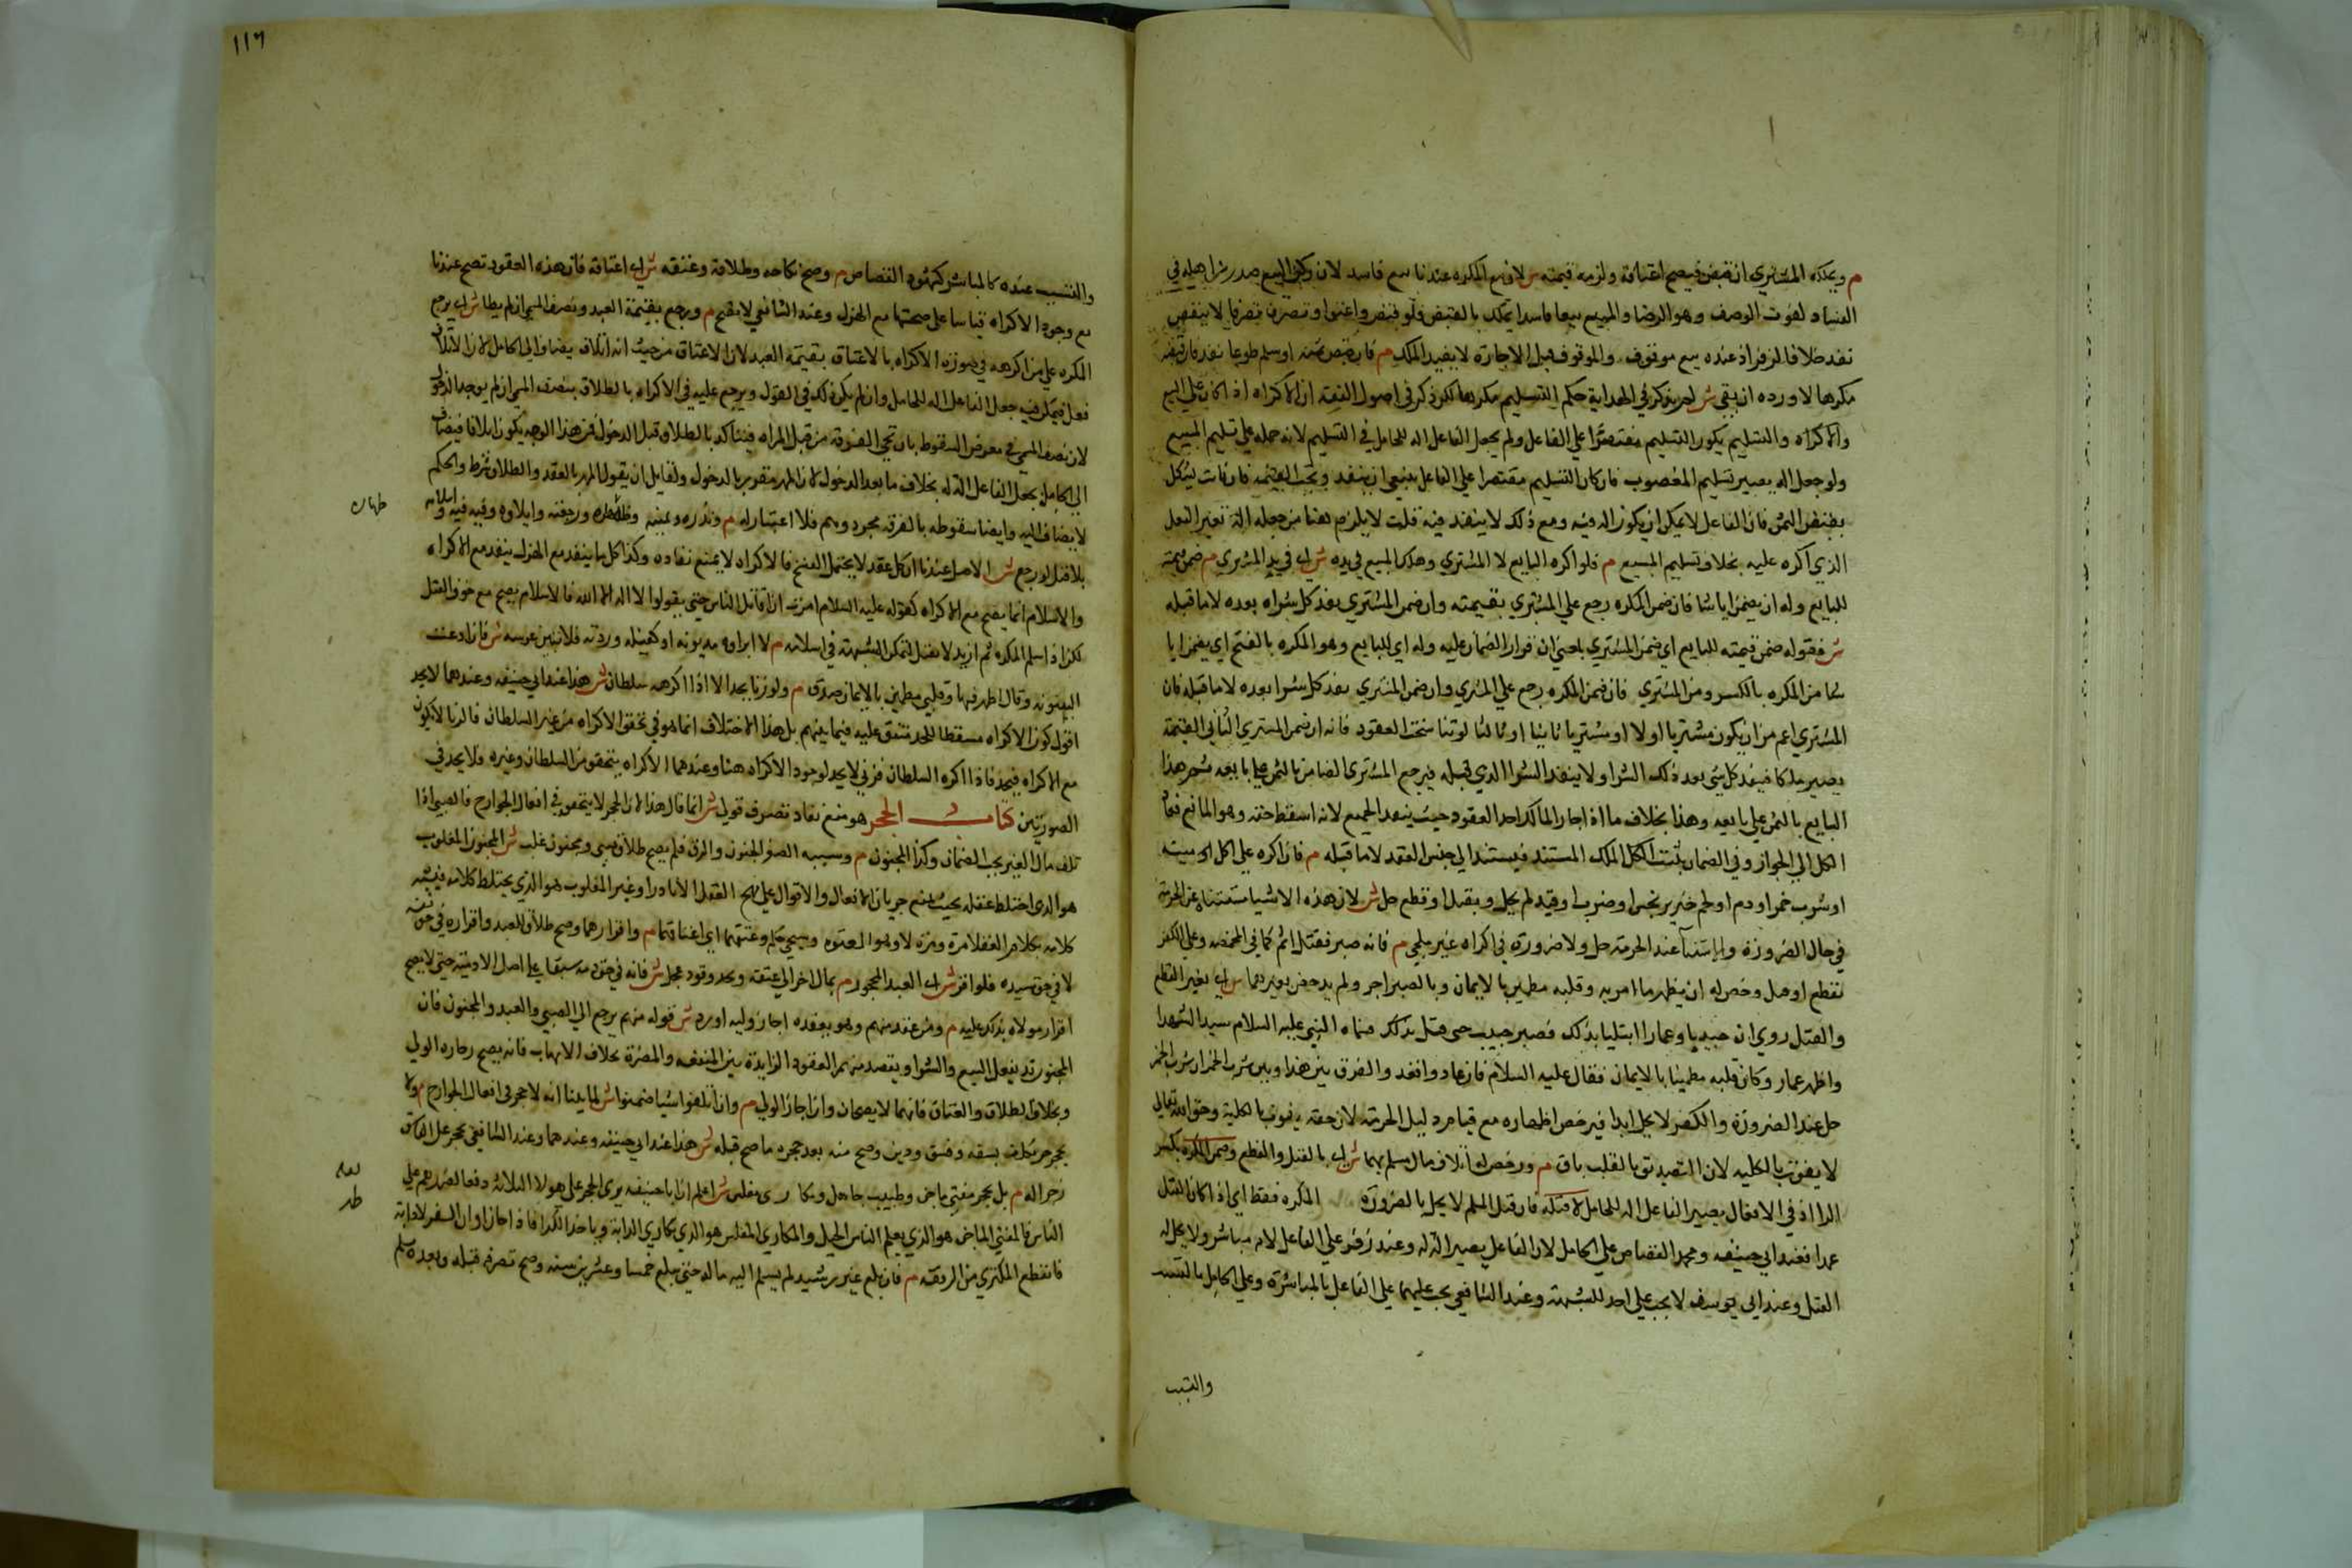 م ويملكه المشتري ان قبض فيصح اعتاقه ولزمه قيمته ش لان بيع المكره عندنا بيع فاسد لان ركن البيع صدر من اهله في
الفساد لفوت الوصف وهو الرضا والمبيع بيعا فاسدا يملك بالقبض فلو قبض واعتق او تصرف تصرفا لا ينقض
نفد خلافا لزفر اذ عنده بيع موقوف والموقوف قبل الاجازة لا يفيد الملك م فان قبض ثمنه او سلم طوعا نفد فان قبضه
مكرها لا ورده ان بقي ش لم يذكر في الهداية حكم التسليم مكرها لكن ذكر في اصول الفقه ان الاكراه اذا كان علي البيع
والاكراه والتسليم يكون التسليم مقتصرا علي الفاعل ولم يجعل الفاعل اله للحامل في التسليم لانه حمله علي تسليم المبيع
ولو جعل اله يصير تسليم المغصوب فان كان التسليم مقتصرا علي الفاعل ينبغي ان ينفد وتجب القيمة فان قلت يشكل
بقبض الثمن فان الفاعل لا يمكن ان يكون اله فيه ومع ذلك لا ينفد فيه قلت لا يلزم هنا من جعله الة تغير الفعل
الذي اكره عليه بخلاف تسليم المبيع م فلو اكره البايع لا المشتري وهلك المبيع في يده ش اي في يد المشتري م ضمن قيمته
للبايع وله ان يضمن ايا شا فان ضمن المكره رجع علي المشتري بقيمته وان ضمن المشتري نفد كل شراه بعده لا ما قبله
ش فقوله ضمن قيمته للبايع اي ضمن المشتري بمعني ان قرار الضمان عليه وله اي للبايع وهو المكره بالفتح اي يضمن ايا
شا من المكره بالكسر ومن المشتري فان ضمن المكره رجع علي المشتري وان ضمن المشتري نفد كل شرا بعده لا ما قبله فان
المشتري اعم من ان يكون مشتريا اولا او مشتريا ثانيا او ثالثا لو تناسخت العقود فانه ان ضمن المشتري الثاني القيمة
يصير ملكا فينفد كل شي بعد ذلك الشرا ولا ينفد الشرا الذي قبله فيرجع المشتري الضامن بالثمن علي بايعه ثم هذا
البايع بالثمن علي بايعه وهذا بخلاف ما اذا اجاز المالك احد العقود حيث ينفد الجميع لانه اسقط حقه وهو المانع فعاد
الكل الي الجواز وفي الضمان يثبت الملك المستند فيستند الي حين العقد لا ما قبله م فان اكره علي اكل ميته
او شرب خمر او دم او لحم خنزير بحبس او ضرب او قيد لم يحل وبقتل او قطع حل ش لان هذه الاشيا مستثناة عن الحرمة
في حال الضرورة والاستثنا عند الحرمة حل ولا ضرورة في اكراه غير ملجي م فانه صبر فقتل اثم كما في المخمصه وعلي الكفر
بقطع او قتل رخص له ان يظهر ما امر به وقلبه مطمين بالايمان وبالصبر اجر ولم يرخص بغيرهما ش اي بغير القطع
والقتل روي ان خبيبا وعمارا ابتليا بذلك فصبر خبيب حتي قتل بذلك فسماه النبي عليه السلام سيد الشهدا
واظهر عمار وكان قلبه مطمينا بالايمان فقال عليه السلام فان عادوا فعد والفرق بين هذا وبين شرب الخمر ان شرب الخمر
حل عند الضرورة والكفر لا يحل ابدا فيرخص اظهاره مع قيام دليل الحرمة لان حقه يفوت بالكلية وحق الله تعالي
لا يفوت بالكليه لان التصديق بالقلب باق م ورخص له اتلاف مال مسلم بهما ش اي بالقتل والقطع وضمن المكره بكسر
الرا اذ في الافعال يصير الفاعل اله للحامل لا قتله فان قتل المسلم لا يحل بالضرورة المكره فقط اي اذا كان القتل
عمدا فعند ابي حنيفه ومحمد القصاص علي الحامل لان الفاعل يصير الة له وعند زفر علي الفاعل لانه مباشر ولا يحل له
القتل وعند ابي يوسف لا يجب علي احد للشبهة وعند الشافعي يجب عليهما علي الفاعل بالمباشرة وعلي الحامل بالتسبب
والتسبب
١١٦
والتسبب عنده كالمباشر كشهود القصاص م وصح نكاحه وطلاقه وعتقه ش اي اعتاقه فان هذه العقود تصح عندنا
مع وجود الاكراه قياسا علي صحتها مع الهزل وعند الشافعي لا يصح م ورجع بقيمة العبد ونصف المسمي ان لم يطا ش اي يرجع
المكره علي من اكرهه في صورة الاكراه بالاعتاق بقيمة العبد لان الاعتاق من حيث انه اتلاف يضاف الي الحامل لان الاتلاف
فعل فيمكن فيه جعل الفاعل اله للحامل وان لم يكن ذلك في القول ويرجع عليه في الاكراه بالطلاق بنصف المسمي ان لم يوجد الدخول
لان نصف المسمي في معرض السقوط بان تجي الفرقة من قبل المراه فيتاكد بالطلاق قبل الدخول فمن هذا الوجه يكون اتلافا فيضاف
الي الحامل بجعل الفاعل الة له بخلاف ما بعد الدخول لان المهر متقرر بالدخول ولقايل ان يقول المهر بالعقد والطلاق شرط والحكم
لا يضاف اليه وايضا سقوطه بالفرقه مجرد وهم فلا اعتبار له م ونذره ويمينه وظهاره ورجعته وايلاوه وفيه فيه واسلامه
ظهاره
بلا قتل لو رجع ش الاصل عندنا ان كل عقد لا يحتمل الفسخ فالاكراه لا يمنع نفاده وكذا كل ما ينفد مع الهزل ينفد مع الاكراه
والاسلام انما يصح مع الاكراه لقوله عليه السلام امرت ان اقاتل الناس حتي يقولوا لا اله الا الله فالاسلام يصح مع خوف القتل
لكن اذا اسلم المكره ثم ارتد لا يقتل لتمكن الشبهة في اسلامه م لا ابراوه مديونه او كفيله وردته فلا تبين عرسه ش فان ادعت
البينونة وقال اظهرتها وقلبي مطمين بالايمان صدق م ولو زنا يحد الا اذا اكرهه سلطان ش هذا عند ابي حنيفه وعندهما لا يحد
اقول كون الاكراه مسقطا للحد متفق عليه فيما بينهم بل هذا الاختلاف انما هو في تحقق الاكراه من غير السلطان فالزنا لا يكون
مع الاكراه فيحد فاذا اكره السلطان فزني لا يحد لوجود الاكراه هنا وعندهما الاكراه يتحقق من السلطان وغيره فلا يحد في
الصورتين كتاب الحجر هو منع نفاد تصرف قولي ش انما قال هذا لان الحجر لا يتحقق في افعال الجوارح فالصبي اذا
تلف مال الغير يجب الضمان وكذا المجنون م وسببه الصغر والجنون والرق فلم يصح طلاق صبي ومجنون غلب ش المجنون المغلوب
هو الذي اختلط عقله بحيث يمنع جريان الافعال والاقوال علي نهج العقل الا نادرا وغير المغلوب هو الذي يختلط كلامه فيشبه
كلامه بكلام العقلا مرة ومرة لا وهو المعتوه وسيجي حكمه وعتقهما اي اعتاقهما م واقرارهما وصح طلاق العبد واقراره في حق نفسه
لا في حق سيده فلو اقر ش اي العبد المحجور م بمال اخر الي عتقه وبحد وقود عجل ش فانه في حق دمه مبقا علي اصل الادمية حتي لا يصح
اقرار مولاه بذلك عليه م ومن عقد منهم وهو يعقده اجاز وليه او رد ش قوله منهم يرجع الي الصبي والعبد والمجنون فان
المجنون قد يعقل البيع والشرا ويقصدهما من العقود الدايرة بين المنفعه والمضرة بخلاف الاتهاب فانه يصح بلا اجازة الولي
وبخلاف الطلاق والعتاق فانهما لا يصحان وان اجاز الولي م وان اتلفوا شيا ضمنوا ش لما بينا انه لا حجر في افعال الجوارح م ولا
يحجر حر مكلف بسفه وفسق ودين وصح منه بعد حجره ما صح قبله ش هذا عند ابي حنيفه وعندهما وعند الشافعي يحجر علي الفاسق
زجرا له م بل يحجر مفتي ماجن وطبيب جاهل ومكاري مفلس ش اعلم ان ابا حنيفه يري الحجر علي هولا الثلاثة دفعا لضررهم علي
الناس فالمفتي الماجن هو الذي يعلم الناس الحيل والمكاري المفلس هو الذي يكاري الدابة وياخذ الكرا فاذا جا اوان السفر لا دابة له
فانقطع المكتري من الرفقه م فان بلغ غير رشيد لم يسلم اليه ماله حتي يبلغ خمسا وعشرين سنه وصح تصرفه قبله وبعده يسلم